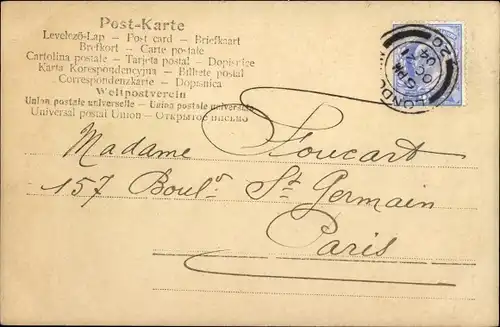 Post-Karte
Levelező-Lap — Post card — Briefkaart
Brefkort — Carte postale
Cartolina postale — Tarjeta postal — Dopisnice
Karta Korespondencyjna — Billete postal
Correspondenzkarte — Dopisnica
Weltpostverein
Union postale universelle — Unia postale universale
Universal postal Union — Открытое письмо
Madame Stoucart
157 Boulᵈ St Germain
Paris
LONDON
5 PM
OC
04